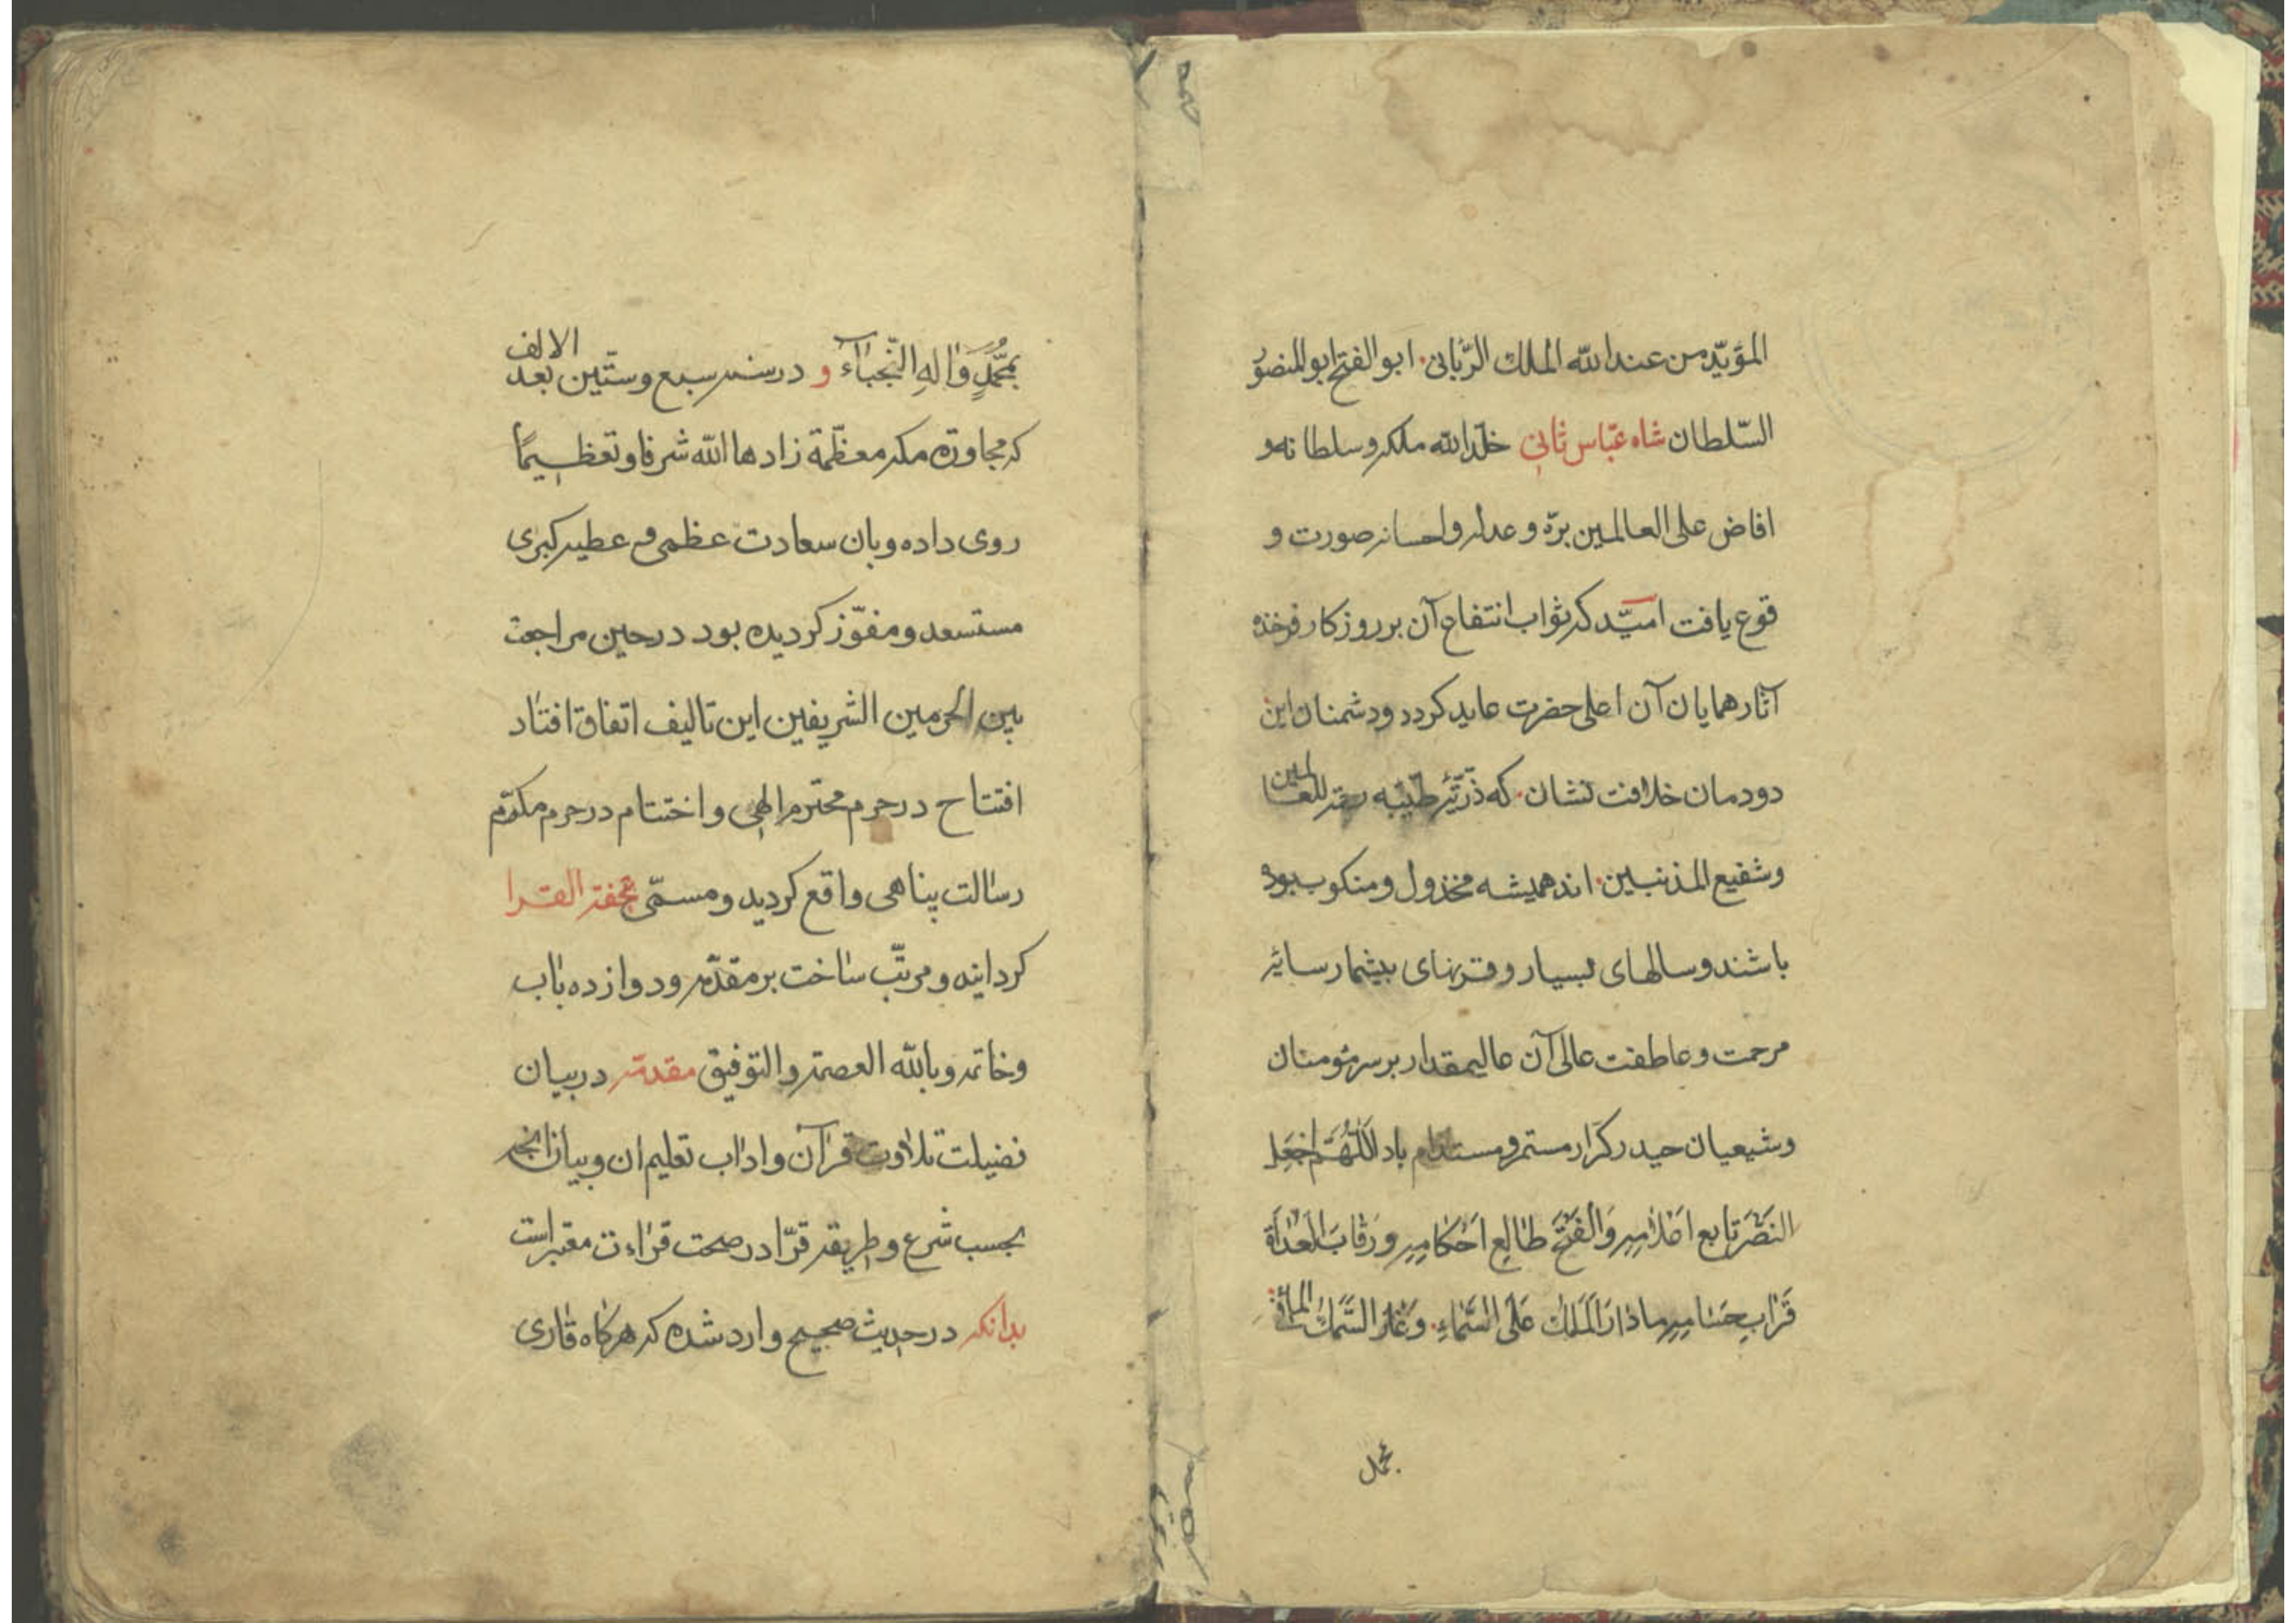 المؤیّد من عند الله الملك الرّبانی ابو الفتح ابو المنصور
السّلطان شاه عبّاس ثانی خلّد الله ملکه وسلطانه و
افاض علی العالمین برّه و عدله و احسانه صورت و
قوع یافت امیّد که ثواب انتفاع آن بر روزکار فرخنده
آثار همایان آن اعلی حضرت عاید کردد و دشمنان این
دودمان خلافت نشان که ذرّیّه طیّبه رحمة للعالمین
وشفیع المذنبین اند همیشه مخذول ومنکوب بوده
باشند وسالهای بسیار و قرنهای بیشمار سایهٔ
مرحمت وعاطفت عالی آن عالیمقدار بر سر مؤمنان
وشیعیان حیدر کرّار مستمر و مستدام باد اللّهُمَّ اجْعَل
النَصْرَ تابع اعلامِه وَالفَتْحَ طالِع اَحْکامِه وَرِقابَ العُداةِ
قرابِ حُسامِه مادارَ الفَلَك عَلَی السَّماءِ وَ السَّمَكُ الماءَ
بمحمّد
بمحمّدٍ وَالهِ النّجباء و در سنه سبع وستّین بعد الالف
که مجاورهٔ مکه معظّمة زادها الله شرفا وتعظیمًا
روی داده وبان سعادت عظمی و عطیه کبری
مستسعد ومفوّز کردیده بود در حین مراجعت
بین الحرمین الشریفین این تالیف اتفاق افتاد
افتتاح در حرم محترم الهی و اختتام در حرم مکرّم
رسالت پناهی واقع کردید ومسمّی بتحفة القرا
کردانیه و مرتّب ساخت بر مقدّمه ودوازده باب
وخاتمه وبالله العصمة والتوفیق مقدمة در بیان
فضیلت تلاوت قرآن واداب تعلیم ان وبیان انچه
بحسب شرع وطریقه قرّا در صحت قراءت معتبر است
بدانکه در حدیث صحیح وارد شده که هرکاه قاری